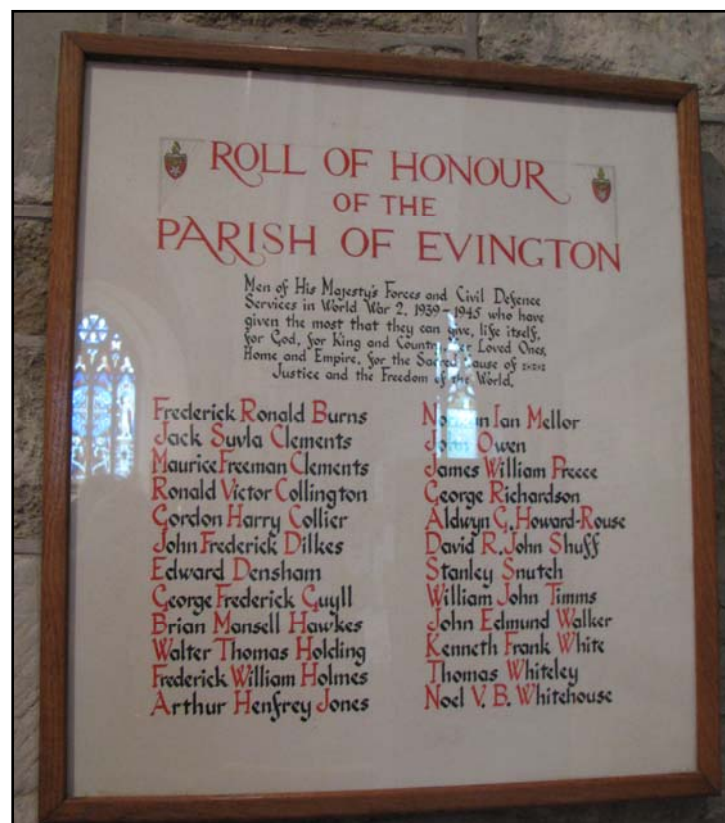 ROLL OF HONOUR
OF THE
PARISH OF EVINGTON
Men of His Majesty's Forces and Civil Defence
Services in World War 2, 1939-1945 who have
given the most that they can give, life itself,
for God, for King and Country, for Loved Ones,
Home and Empire, for the Sacred Cause of
Justice and the Freedom of the World.
Frederick Ronald Burns
Jack Suvla Clements
Maurice Freeman Clements
Ronald Victor Collington
Gordon Harry Collier
John Frederick Dilkes
Edward Densham
George Frederick Guyll
Brian Mansell Hawkes
Walter Thomas Holding
Frederick William Holmes
Arthur Henfrey Jones
Norman Ian Mellor
John Owen
James William Preece
George Richardson
Aldwyn G. Howard-Rouse
David R. John Shuff
Stanley Snutch
William John Timms
John Edmund Walker
Kenneth Frank White
Thomas Whiteley
Noel V. B. Whitehouse